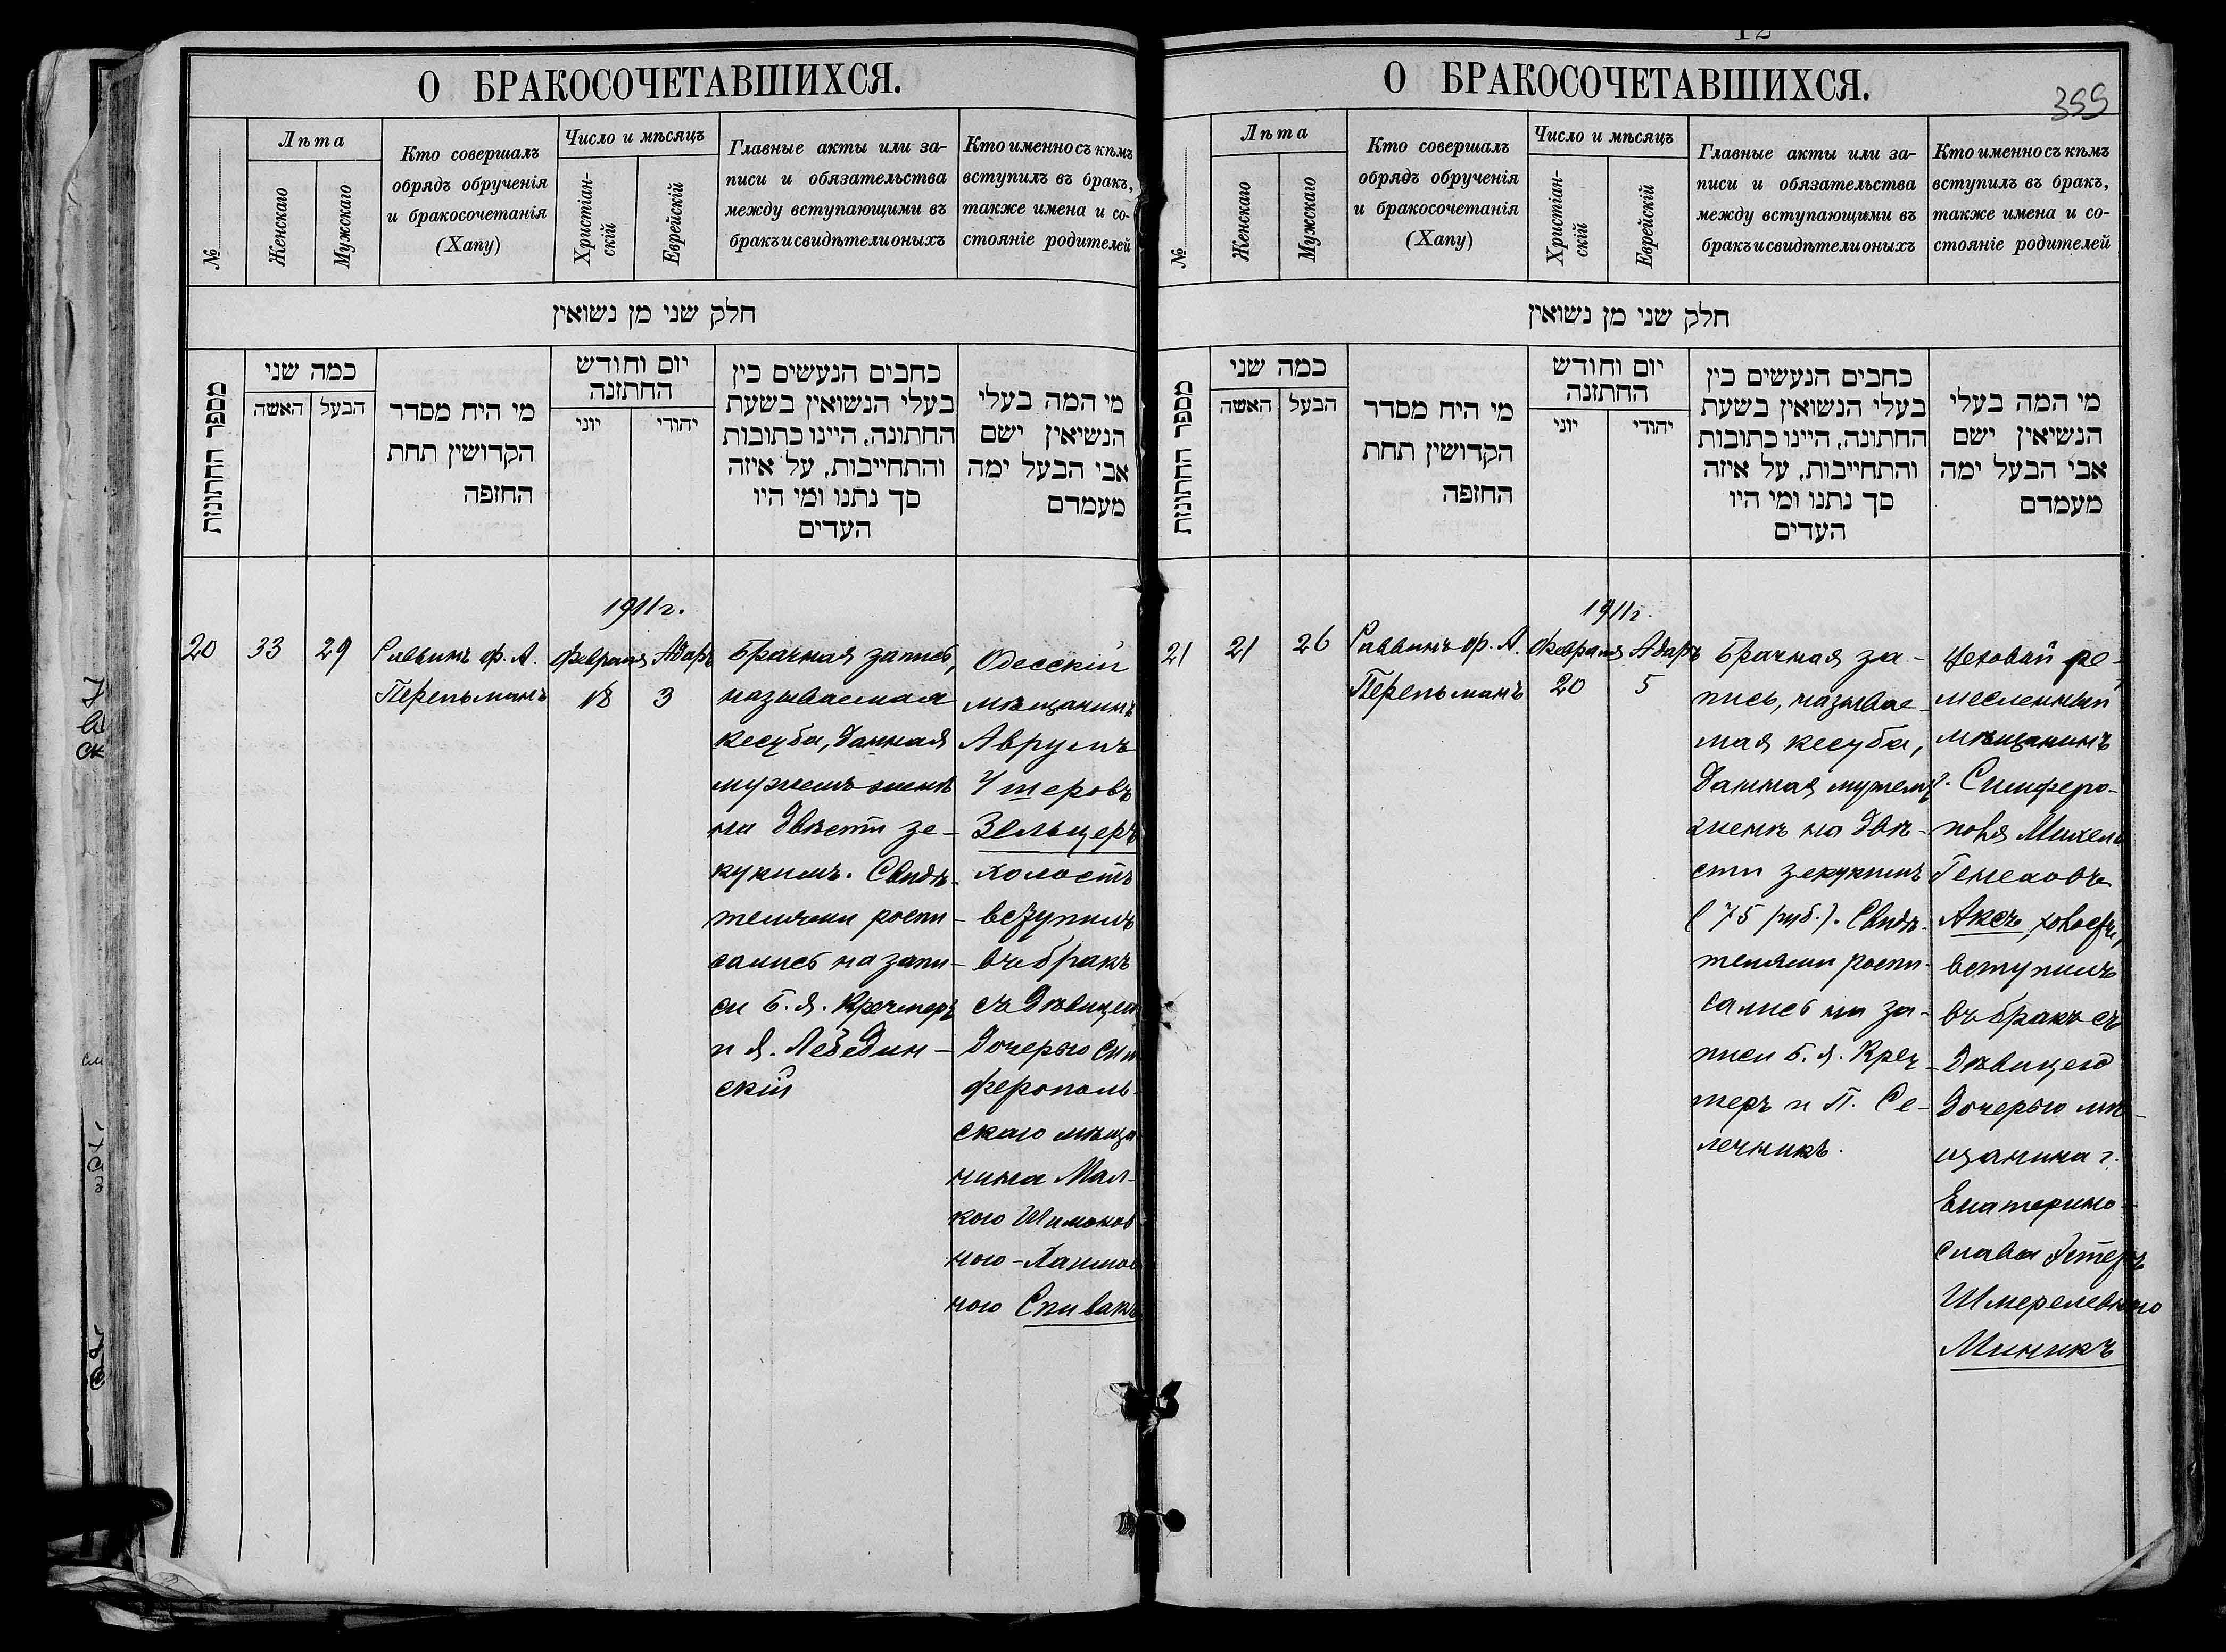 О БРАКОСОЧЕТАВШИХСЯ.
№
Лѣта
Женскаго
Мужскаго
Кто совершалъ
обрядъ обрученія
и бракосочетанія
(Хапу)
Число и мѣсяцъ
Христіан-
скій
Еврейскій
Главные акты или за-
писи и обязательства
между вступающими въ
бракъ и свидѣтели оныхъ
Кто именно съ кѣмъ
вступилъ въ бракъ,
также имена и со-
стояніе родителей
חלק שני מן נשואין
מספר החתונות
כמה שני
האשה
הבעל
מי היח מסדר
הקדושין תחת
החופה
יום וחודש
החתונה
יוני
יהודי
כתבים הנעשים בין
בעלי הנשואין בשעת
החתונה, היינו כתובות
והתחייבות, על איזה
סך נתנו ומי היו
העדים
מי המה בעלי
הנשיאין ישם
אבי הבעל ימה
מעמדם
20
33
29
Раввинъ Ф. А.
Перельманъ
1911 г.
Февраля
18
Адаръ
3
Брачная запись,
называемая
кесуба, данная
мужемъ женѣ
на двѣсти зе-
кукимъ. Свидѣ-
телями роспи-
сались на запи-
си Б. Я. Кречмеръ
и Я. Лебедин-
скій
Одесскій
мѣщанинъ
Аврумъ
Ушеровъ
Зельцеръ
холостъ
вступилъ
въ бракъ
съ дѣвицею
дочерью сим
ферополь-
скаго мѣща-
нина Мал-
кою Шимонов
ною-Хаимов
ною Спивакъ
О БРАКОСОЧЕТАВШИХСЯ.
12
355
№
Лѣта
Женскаго
Мужскаго
Кто совершалъ
обрядъ обрученія
и бракосочетанія
(Хапу)
Число и мѣсяцъ
Христіан-
скій
Еврейскій
Главные акты или за-
писи и обязательства
между вступающими въ
бракъ и свидѣтели оныхъ
Кто именно съ кѣмъ
вступилъ въ бракъ,
также имена и со-
стояніе родителей
חלק שני מן נשואין
מספר החתונות
כמה שני
האשה
הבעל
מי היח מסדר
הקדושין תחת
החופה
יום וחודש
החתונה
יוני
יהודי
כתבים הנעשים בין
בעלי הנשואין בשעת
החתונה, היינו כתובות
והתחייבות, על איזה
סך נתנו ומי היו
העדים
מי המה בעלי
הנשיאין ישם
אבי הבעל ימה
מעמדם
21
21
26
Раввинъ Ф. А.
Перельманъ
1911 г.
Февраля
20
Адаръ
5
Брачная за-
пись, называе-
мая кесуба,
данная мужемъ
женѣ на двѣ-
сти зекукимъ
(75 руб.). Свидѣ-
телями роспи-
сались на за-
писи Б. Я. Креч-
меръ и П. Се-
лечникъ.
Цеховой ре-
месленный
мѣщанинъ
г. Симферо-
поля Михель
Генеховъ
Аксъ, холостъ,
вступилъ
въ бракъ съ
дѣвицею
дочерью мѣ-
щанина г.
Екатерино-
слава Эстеръ
Шмерелевною
Миникъ